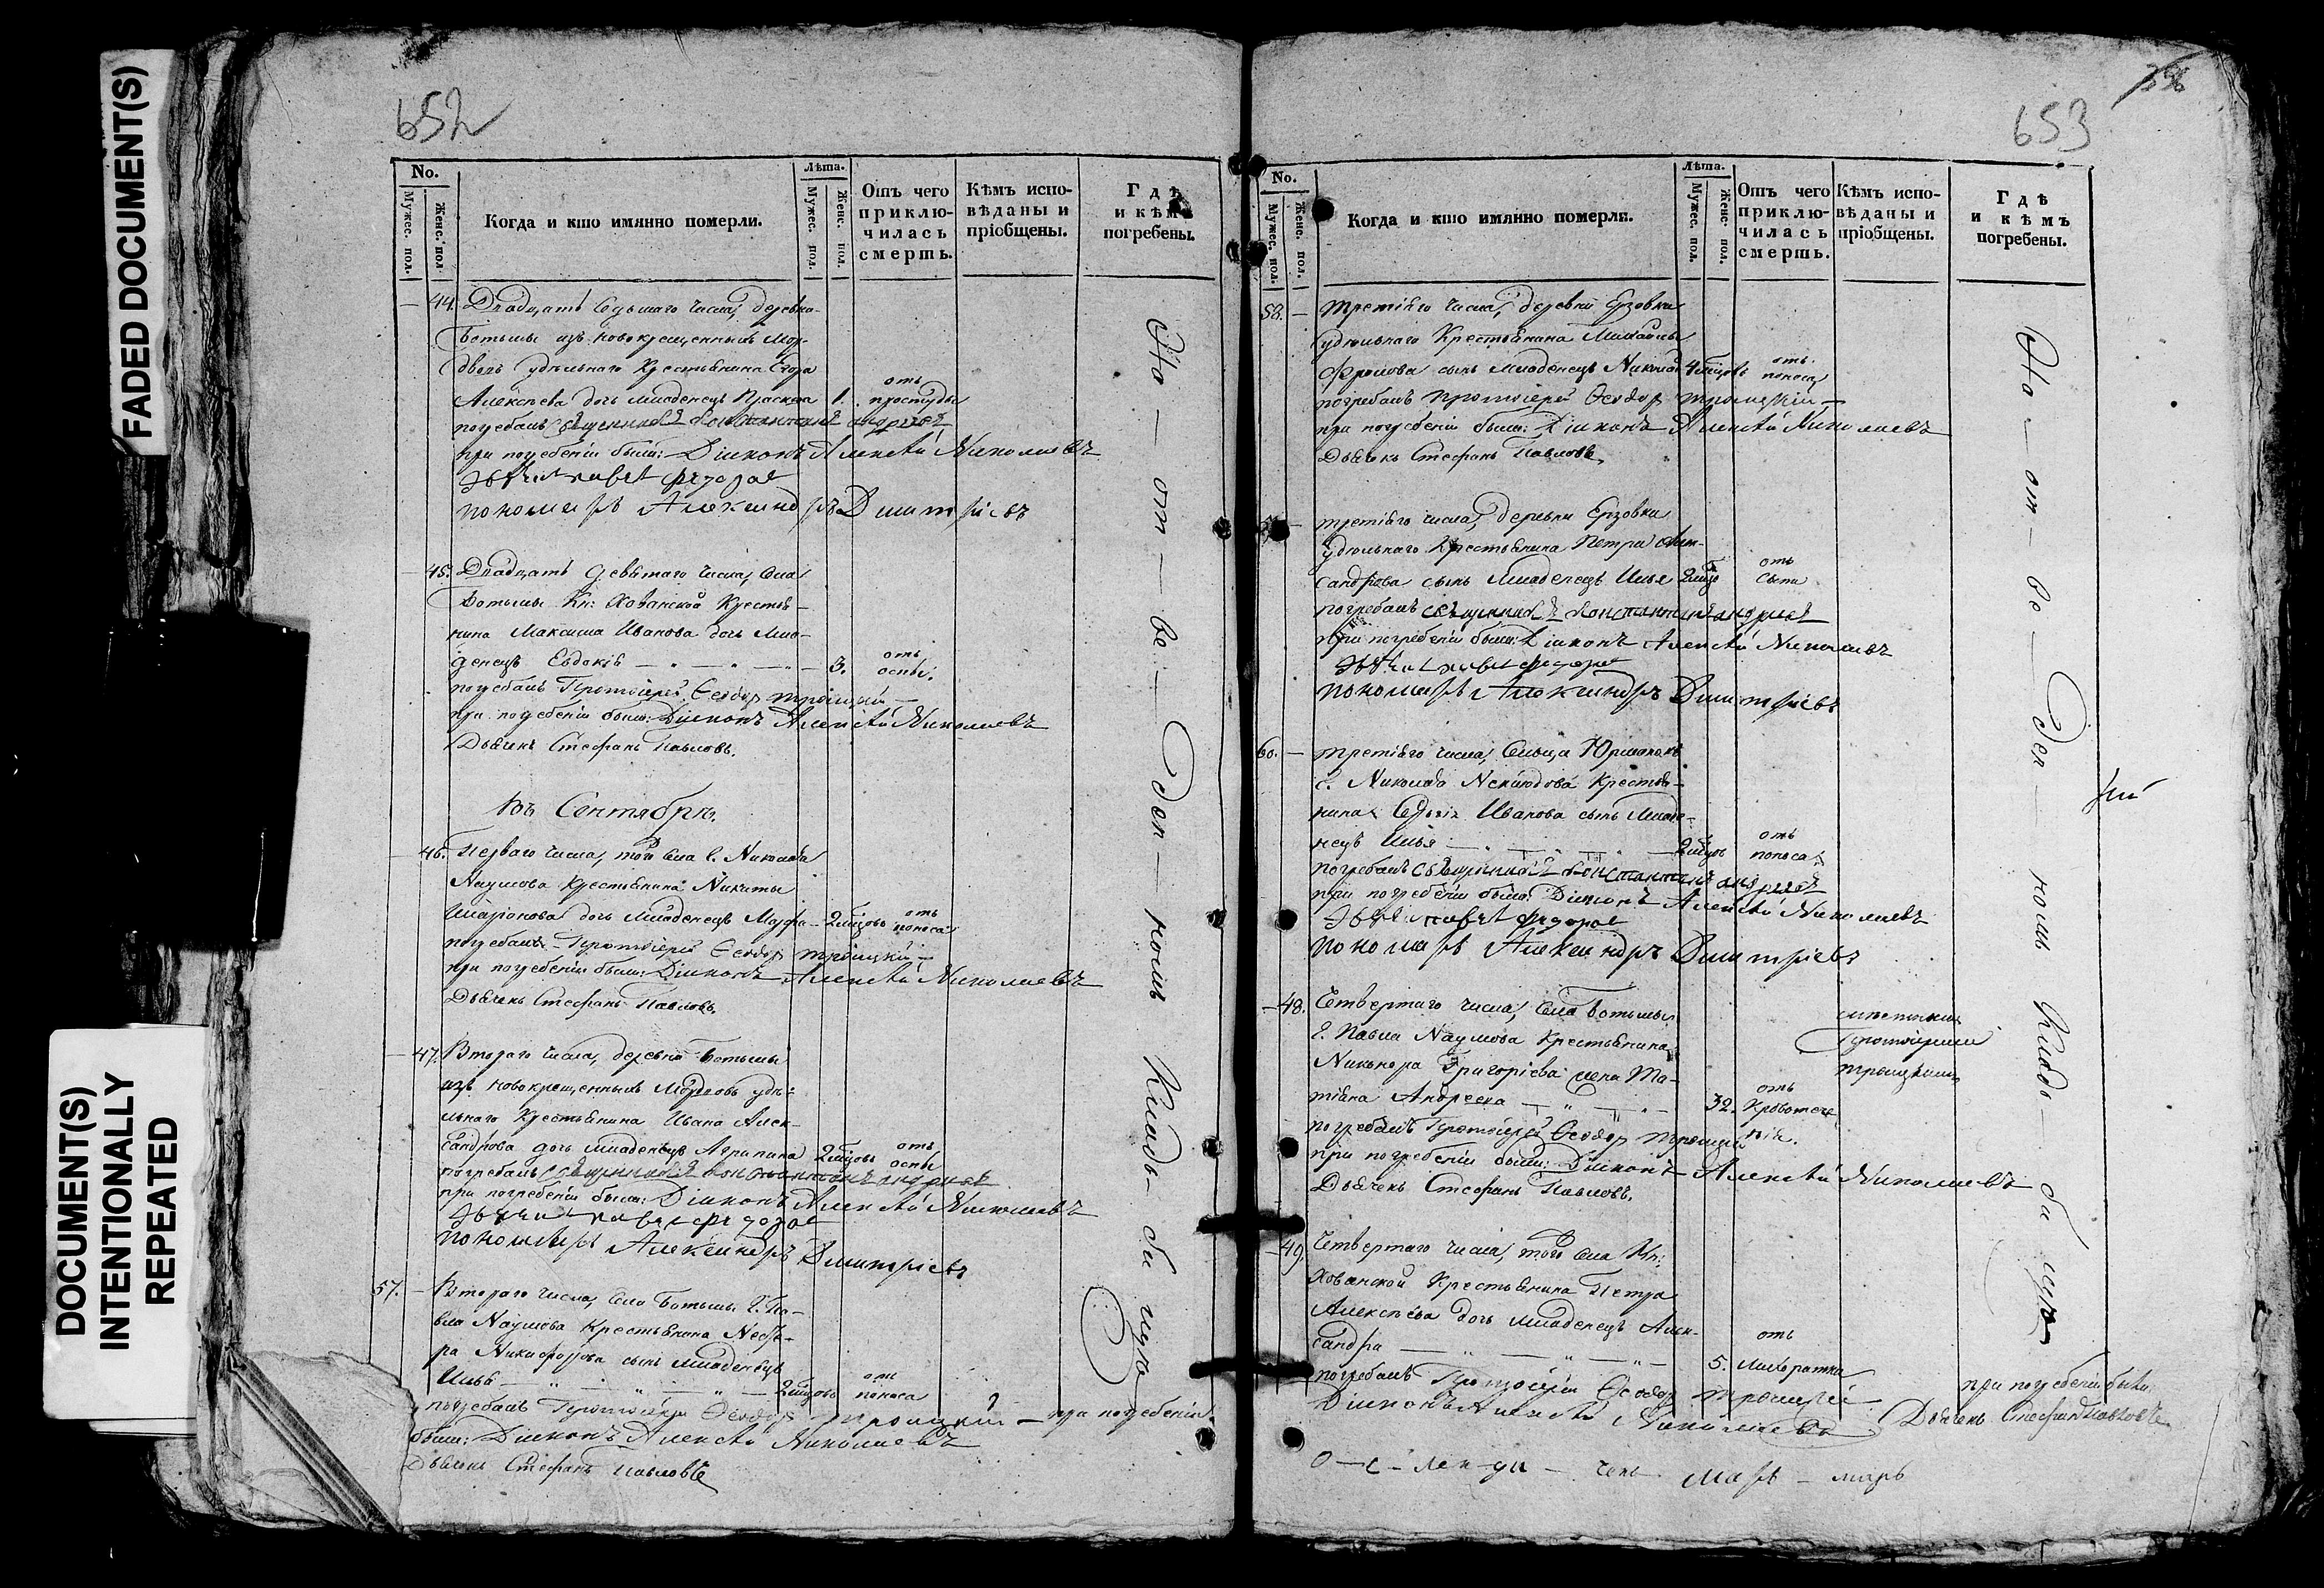 FADED DOCUMENT(S)
DOCUMENT(S)
INTENTIONALLY
REPEATED
652
No.
Мужес. пол.
Женс. пол
Когда и кто имянно померли.
Лѣта.
Мужес. пол.
Женс. пол.
Отъ чего
приклю-
чилась
смерть.
Кѣмъ испо-
вѣданы и
пріобщены.
Гдѣ
и кѣмъ
погребены.
44. Двадцать седьмаго числа, деревни
Ботьмы изъ новокрещенныхъ Мор-
двовъ удѣльнаго Крестьянина Егора
Алексѣева дочь младенецъ Праскева 1. отъ простуды
погребалъ священникъ Константинъ Андреевъ
при погребеніи были: Діаконъ Алексѣй Николаевъ
дьячекъ Павел Федоров
пономарь Александръ Димитріевъ
45. Двадцать девятаго числа, села
Ботьмы Кн: Хованской Крестья-
нина Максима Иванова дочь мла-
денецъ Евдокія 3. отъ оспы.
погребалъ Протоіерей Ѳеодоръ Троицкій
при погребеніи были: Діаконъ Алексѣй Николаевъ
Дьячекъ Стефанъ Павловъ.
Въ Сентябрѣ.
46. Перваго числа, того села Г. Николая
Наумова Крестьянина Никиты
Иларіонова дочь младенецъ Марфа 2 мѣсцовъ отъ поноса
погребалъ Протоіерей Ѳеодоръ Троицкій
при погребеніи были: Діаконъ Алексѣй Николаевъ
Дьячекъ Стефанъ Павловъ.
47. Втораго числа, деревни Ботьмы
изъ новокрещенныхъ Мордвовъ удѣ-
льнаго Крестьянина Ивана Алек-
сандрова дочь младенецъ Агрипина 2 мѣсцовъ отъ оспы
погребалъ священникъ Константинъ Андреевъ
при погребеніи были: Діаконъ Алексѣй Николаевъ
дьячекъ Павел Федоров
пономарь Александръ Димитріевъ
57. Втораго числа, села Ботьмы Г. Па-
вла Наумова Крестьянина
Никифорова сынъ младенецъ
Илья 2 мѣсцовъ отъ поноса
погребалъ Протоіерей Ѳеодоръ Троицкій при погребеніи
были: Діаконъ Алексѣй Николаевъ
Дьячекъ Стефанъ Павловъ
На — от — ве — ден — номъ Кладъ — би щѣ
653
No.
Мужес. пол.
Женс. пол.
Когда и кто имянно померли.
Лѣта.
Мужес. пол.
Женс. пол.
Отъ чего
приклю-
чилась
смерть.
Кѣмъ испо-
вѣданы и
пріобщены.
Гдѣ
и кѣмъ
погребены.
58. третьяго числа, деревни Ерзовки
удѣльнаго Крестьянина Михайлы
Фролова сынъ младенецъ Николай 4 мѣсцовъ отъ поноса
погребалъ Протоіерей Ѳеодоръ Троицкій
при погребеніи были: Діаконъ Алексѣй Николаевъ
Дьячекъ Стефанъ Павловъ
третьяго числа, деревни Ерзовки
удѣльнаго Крестьянина Петра Алек-
сандрова сынъ младенецъ Илья 2 мѣсц отъ сыпи
погребалъ священникъ Константинъ Андреевъ
при погребеніи были: Діаконъ Алексѣй Николаевъ
дьячекъ Павел Федоров
пономарь Александръ Димитріевъ
60. третьяго числа, сельца
Г. Николая Крестья-
нина Сергія Иванова сынъ младе-
нецъ Илья 2 мѣсцовъ отъ поноса
погребалъ священникъ Константинъ Андреевъ
при погребеніи были: Діаконъ Алексѣй Николаевъ
дьячекъ Павел Федоров
пономарь Александръ Димитріевъ
48. Четвертаго числа, села Ботьмы
Г. Павла Наумова Крестьянина
Никанора Григорьева жена Та-
тіяна Андреева 32. отъ Кровотече нія.
Протоіереемъ
Троицкимъ
погребалъ Протоіерей Ѳеодоръ Троицкій
при погребеніи были: Діаконъ Алексѣй Николаевъ
Дьячекъ Стефанъ Павловъ.
49. Четвертаго числа, того села Кн:
Хованской Крестьянина Петра
Алексѣева дочь младенецъ Алек-
сандра 5. отъ лихоратки
погребалъ Протоіерей Ѳеодоръ Троицкій при погребеніи были:
Діаконъ Алексѣй Николаевъ Дьячекъ Стефанъ Павловъ
На — от — ве — ден — номъ Кладъ — би щѣ